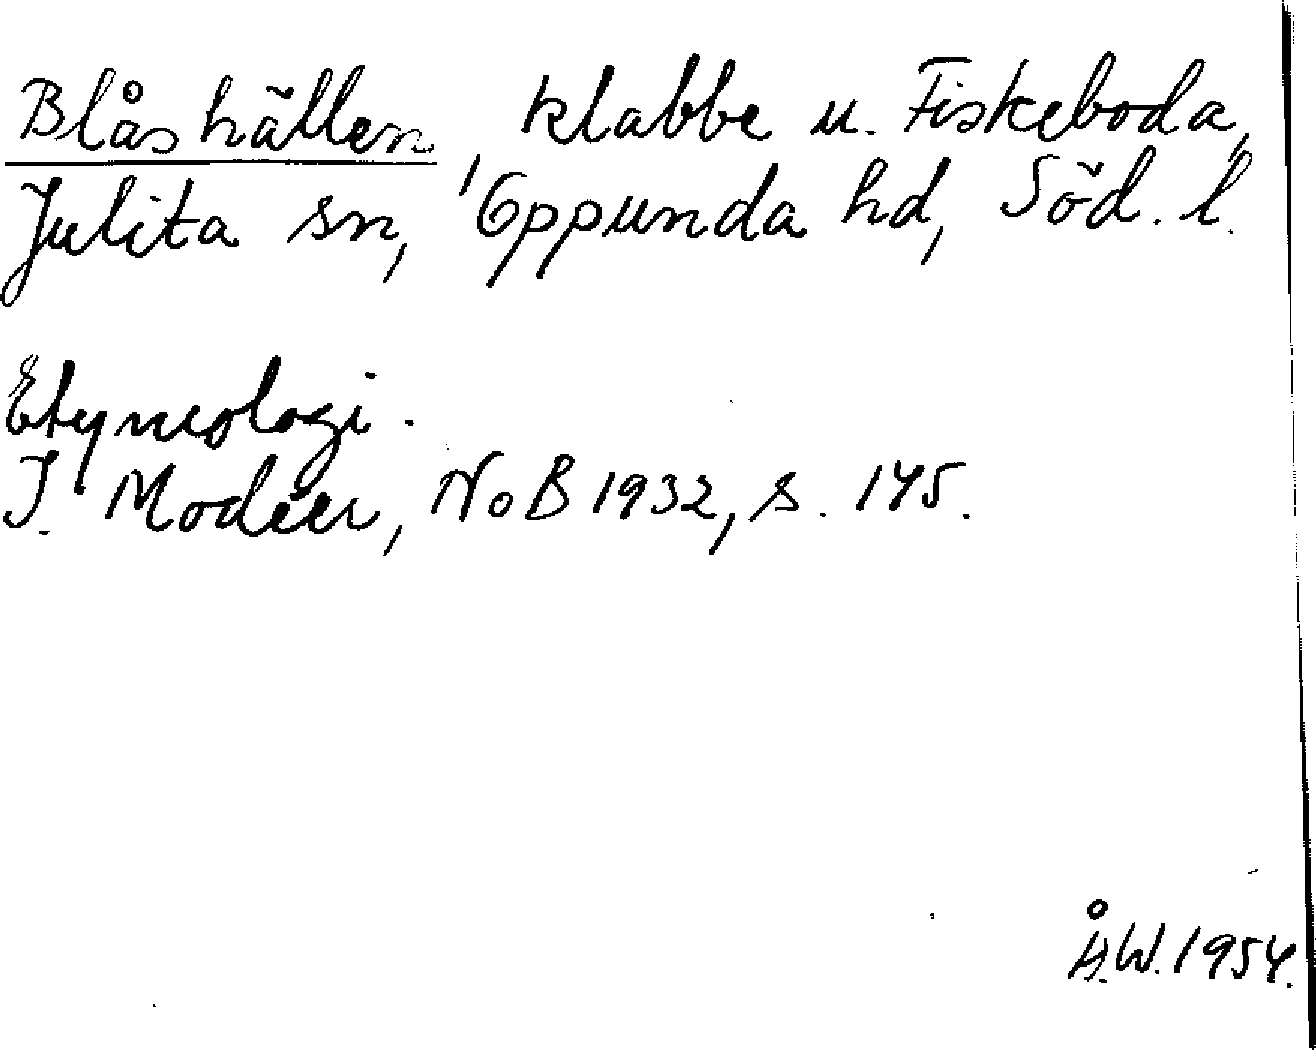 Blåshällen, klabbe u. Fiskeboda,
Julita sn, Oppunda hd, Söd. l.
Etymologi.
I. Modéer, NoB 1932, s. 145.
Å.W. 1954.